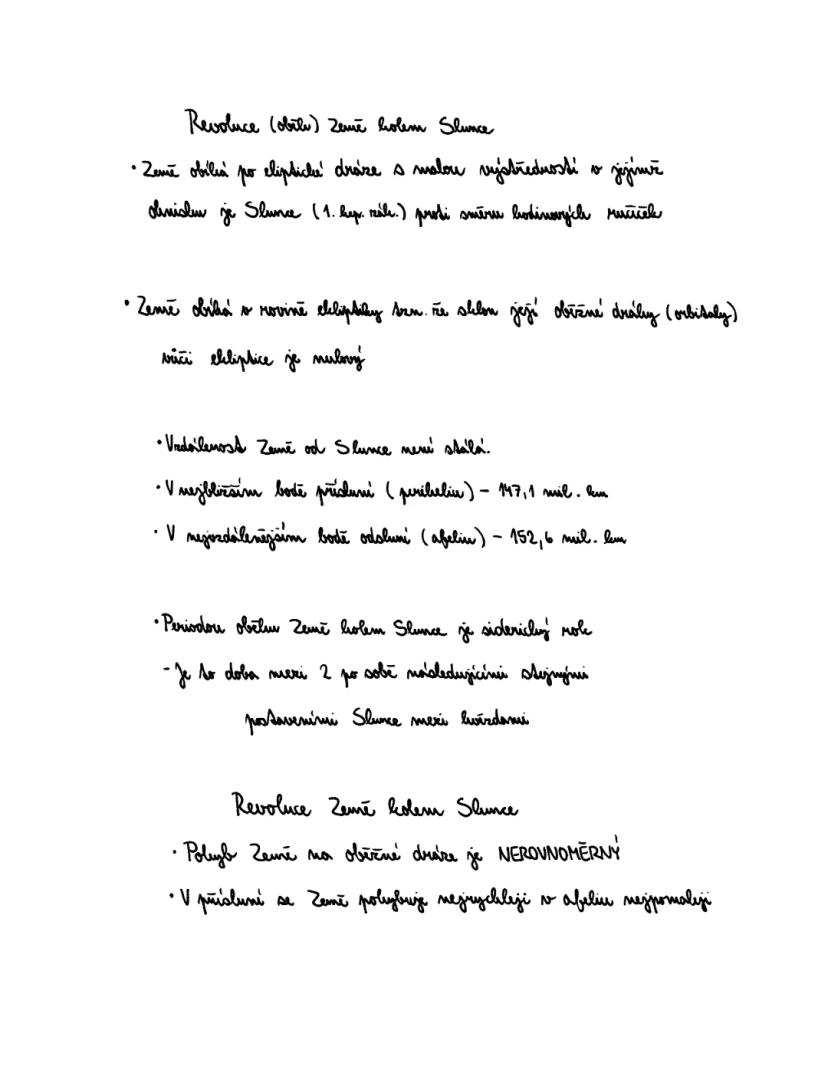 Revoluce (oběh) Země kolem Slunce
• Země obíhá po eliptické dráze s malou výstředností v jejímž
ohnisku je Slunce (1. kep. zák.) proti směru hodinových ručiček
• Země obíhá v rovině ekliptiky tzn. že sklon její oběžné dráhy (orbitaly)
vůči ekliptice je nulový
• Vzdálenost Země od Slunce není stálá.
• V nejbližším bodě přísluní (periheliu) - 147,1 mil. km
• V nejvzdálenějším bodě odsluní (afeliu) - 152,6 mil. km
• Periodou oběhu Země kolem Slunce je siderický rok
- Je to doba mezi 2 po sobě následujícími stejnými
postaveními Slunce mezi hvězdami
Revoluce Země kolem Slunce
• Pohyb Země na oběžné dráze je NEROVNOMĚRNÝ
• V přísluní se Země pohybuje nejrychleji v afeliu nejpomaleji